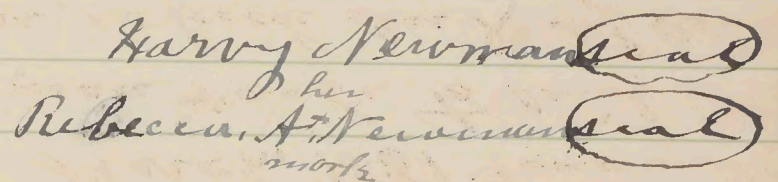 Harvy Newman seal
her
Rebecca, A + Newman seal
mark